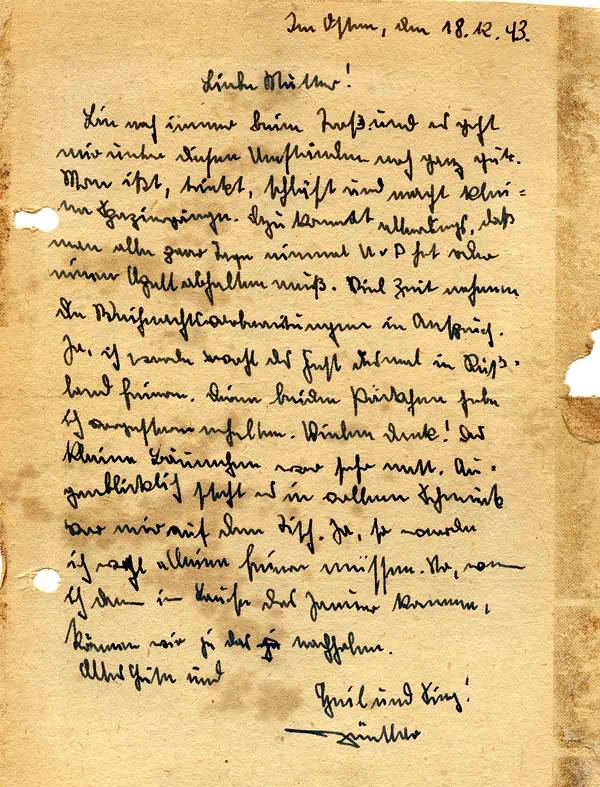 Im Osten, den 18.12.43.
Liebe Mutter!
Bin noch immer beim Troß und es geht
mir unter diesen Umständen noch ganz gut.
Man ißt, trinkt, schläft und macht klei-
ne Spaziergänge. Dazu kommt allerdings, daß
man alle paar Tage einmal UvD hat oder
einen Appell abhalten muß. Viel Zeit nehmen
die Weihnachtsvorbereitungen in Anspruch.
Ja, ich werde wohl das Fest diesmal in Ruß-
land feiern. Deine beiden Päckchen habe
ich vorgestern erhalten. Vielen Dank! Das
kleine Bäumchen war sehr nett. Au-
genblicklich steht es in vollem Schmuck
vor mir auf dem Tisch. Ja, so werde
ich wohl alleine feiern müssen. Na, wenn
ich dann im Laufe des Januar komme,
können wir ja das ja nachholen.
Alles Gute und
Heil und Sieg!
Günther